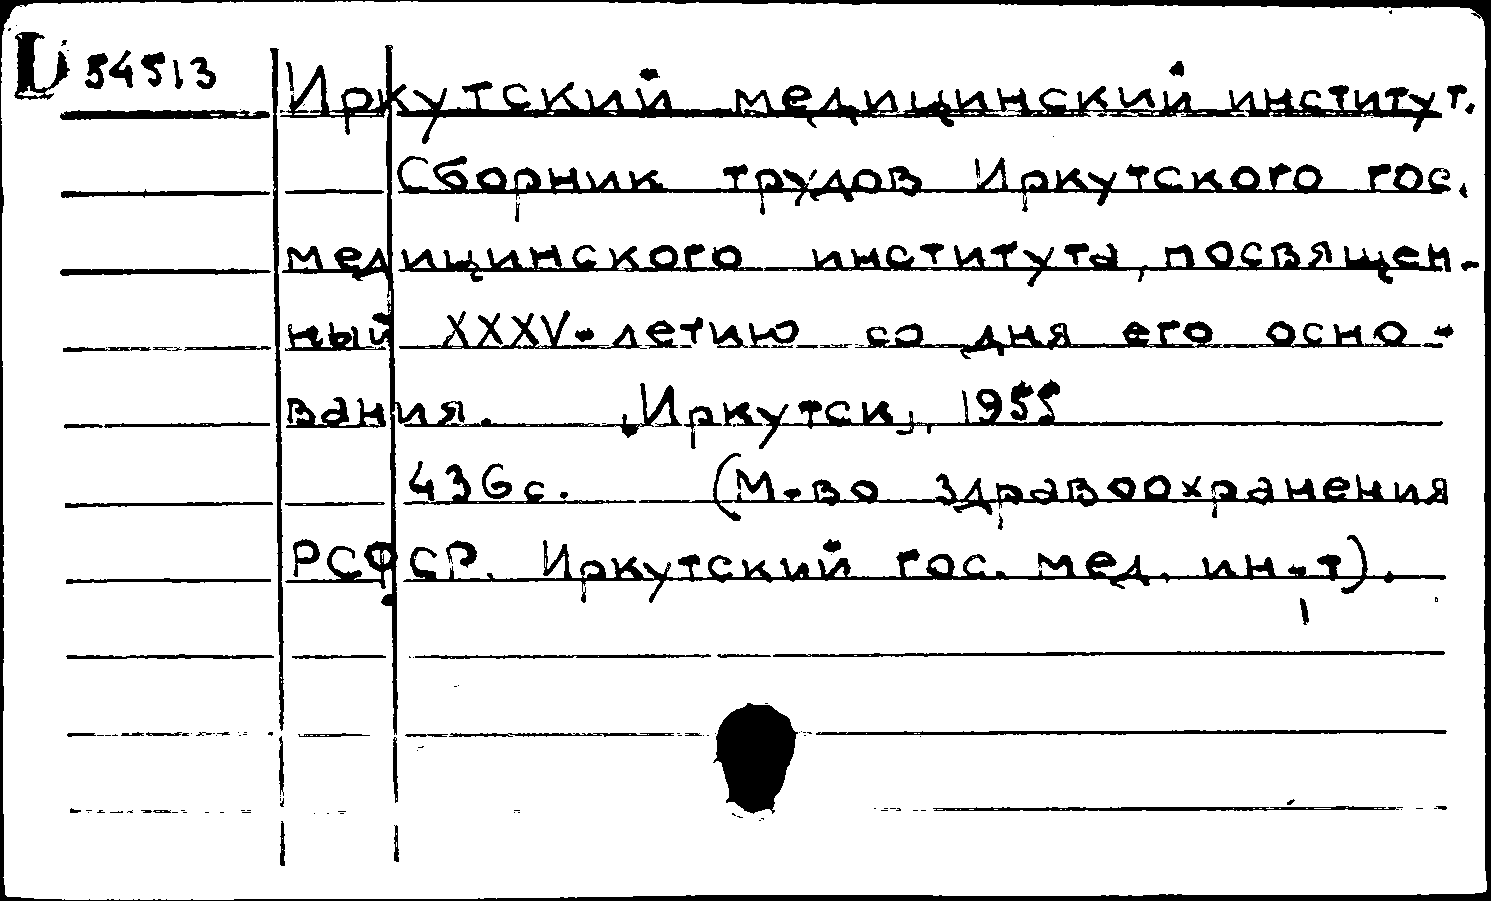 D 54513
Иркутский медицинский институт.
Сборник трудов Иркутского гос.
медицинского института, посвящен-
ный XXXV-летию со дня его осно-
вания. [Иркутск], 1955
436 с. (М-во здравоохранения
РСФСР. Иркутский гос. мед. ин-т).